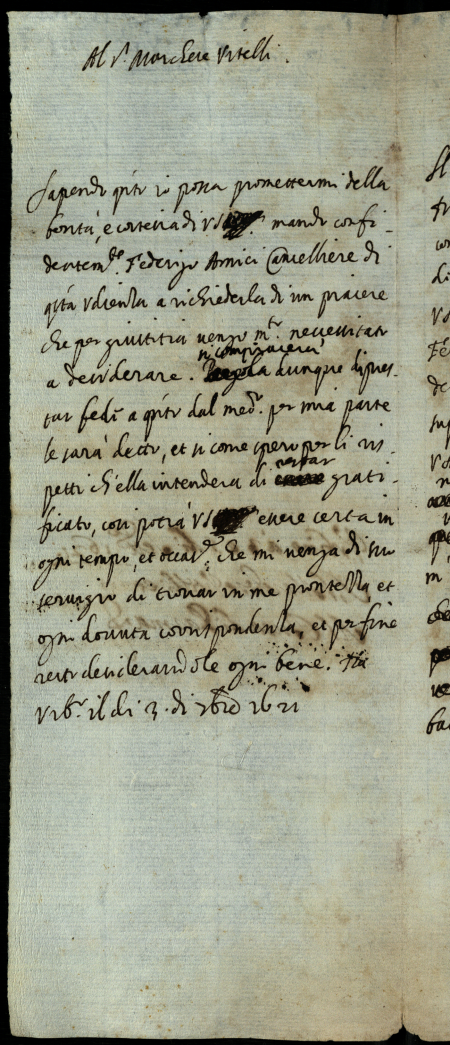 Al s.r Marchese Vitelli.
Sapendo q.to io possa promettermi della
bontà, e cortesia di VS mando confi-
dentem.te Federigo Amici Cancelliere di
q.ta Udienza a richiederla di un piacere
che per giustitia vengo m.to necessitato
a desiderare. si compiacerà dunque di pres-
tar fede a q.to dal med.o per mia parte
le sarà detto, et si come spero per li ris-
petti ch'ella intenderà di restar grati-
ficato, così potrà VS essere certa in
ogni tempo, et occas.e che mi venga di suo
servigio di trovar in me prontezza, et
ogni dovuta corrispondenza, et per fine
resto desiderandole ogni bene.
Urb.o il dì 3. di 1621